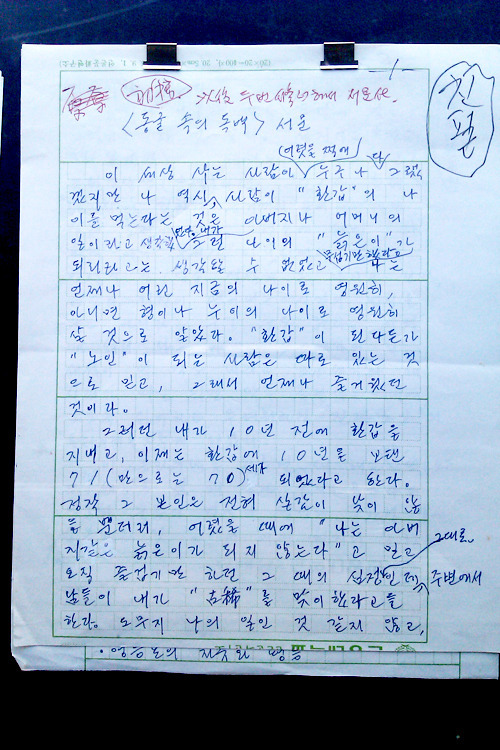 -1-
初稿. 次後 두번 새로 써서
친필
<동굴 속의 독백> 서문
어렸을 적에
이 세상 사는 사람이 누구나 다 그렇
겠지만 나 역시, 사람이 "환갑"의 나
이를 먹는다는 것은 아버지나 어머니의
일이라고 생각 내가 그런 나이의 "늙은이"가
되리라고는 생각할 수 없었고 나는
언제나 어린 지금의 나이로 영원히,
아니면 형이나 누이의 나이로 영원히
살 것으로 알았다. "환갑"이 된다든가
"노인"이 되는 사람은 따로 있는 것
으로 믿고, 그래서 언제나 즐거웠던
것이다.
그러던 내가 10년 전에 환갑을
지내고, 이제는 환갑에 10년을 보탠
71(만으로는 70)세가 되었다고 한다.
정작 그 본인은 전혀 실감이 맞이 않
을 뿐더러, 어렸을 때에 "나는 아버
지같은 늙은이가 되지 않는다"고 믿고
그대로
오직 즐겁기만 하던 그 때의 심정인데, 주변에서
남들이 내가 "古稀"를 맞이했다고들
한다. 도무지 나의 일인 것 같지 않고,